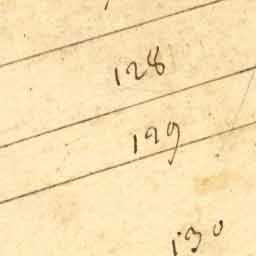 128
129
130